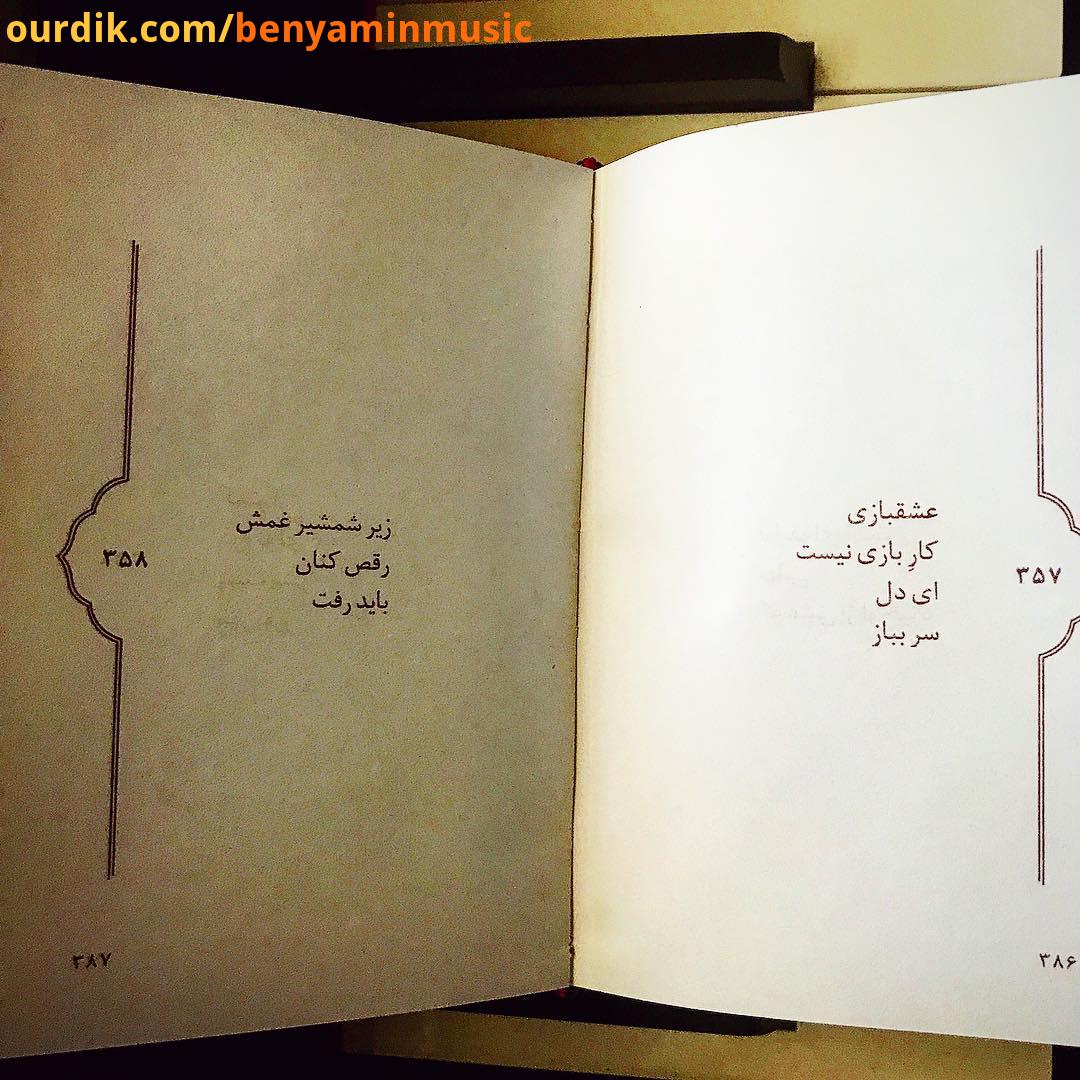 ourdik.com/benyaminmusic
عشقبازی
کارِ بازی نیست
ای دل
سر بباز
۳۵۷
۳۸۶
زیر شمشیر غمش
رقص کنان
باید رفت
۳۵۸
۳۸۷